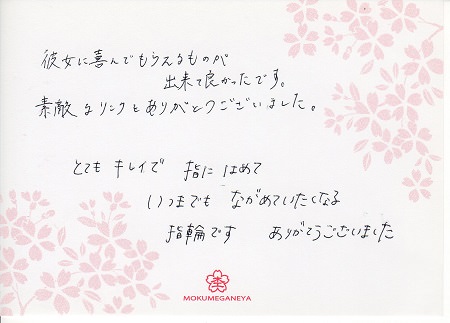 彼女に喜んでもらえるものが
出来て良かったです。
素敵なリングとありがとうございました。
とても キレイで 指に はめて
いつまでも ながめていたくなる
指輪です ありがとうございました
MOKUMEGANEYA